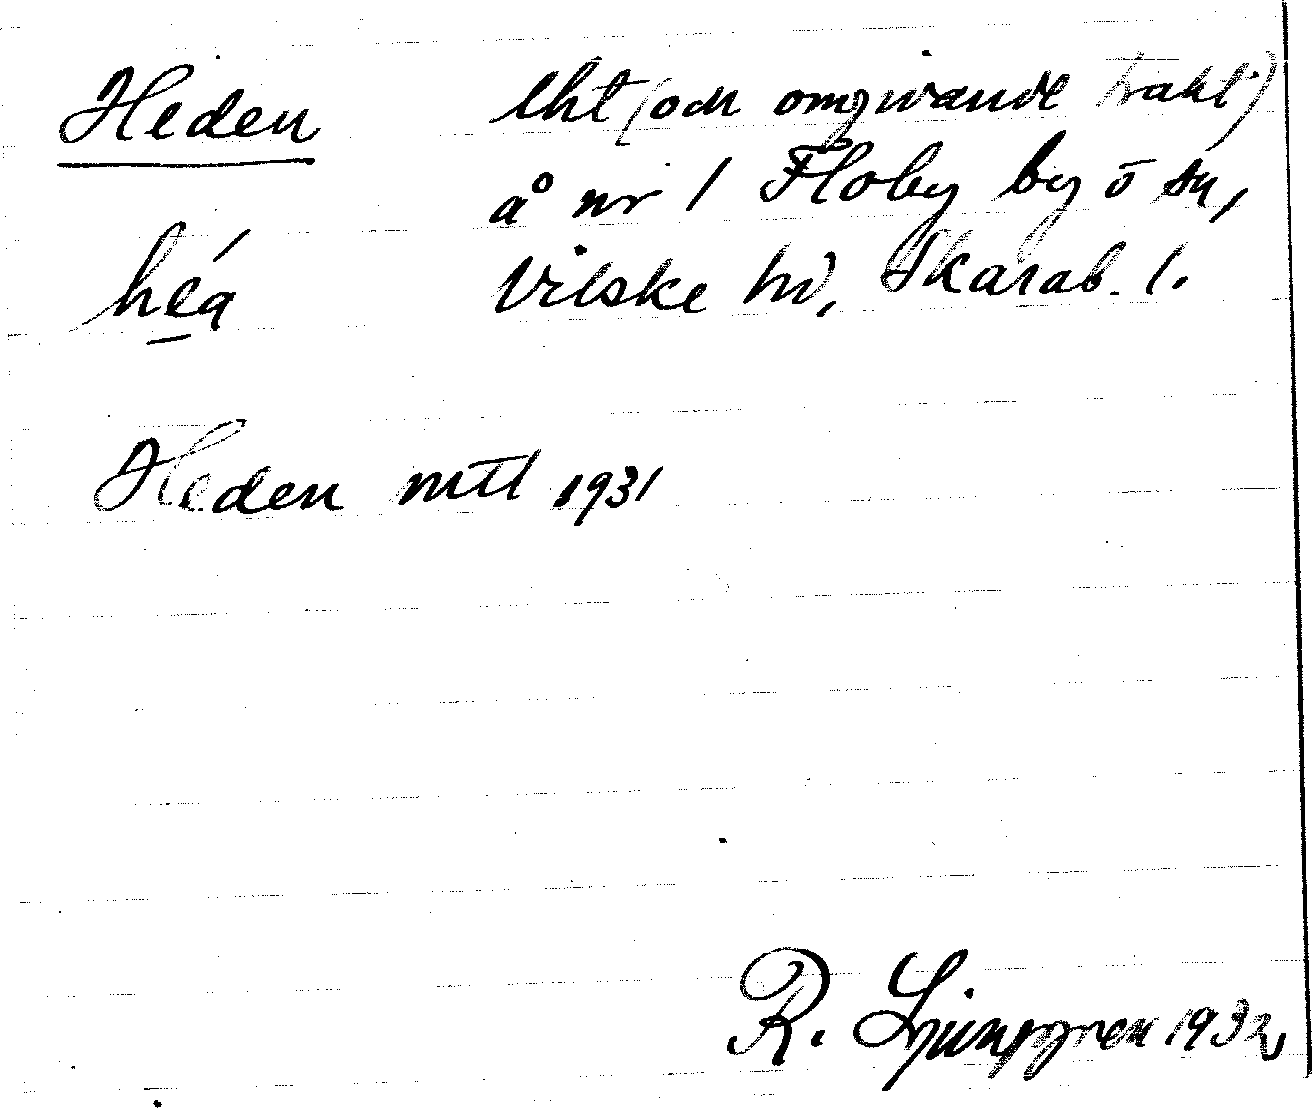 Heden lht (och omgivande trakt)
å nr 1 Floby by o sn,
hea Vilske hd, Skarab. l.
Heden mtl 1931
R. Ljunggren 1932